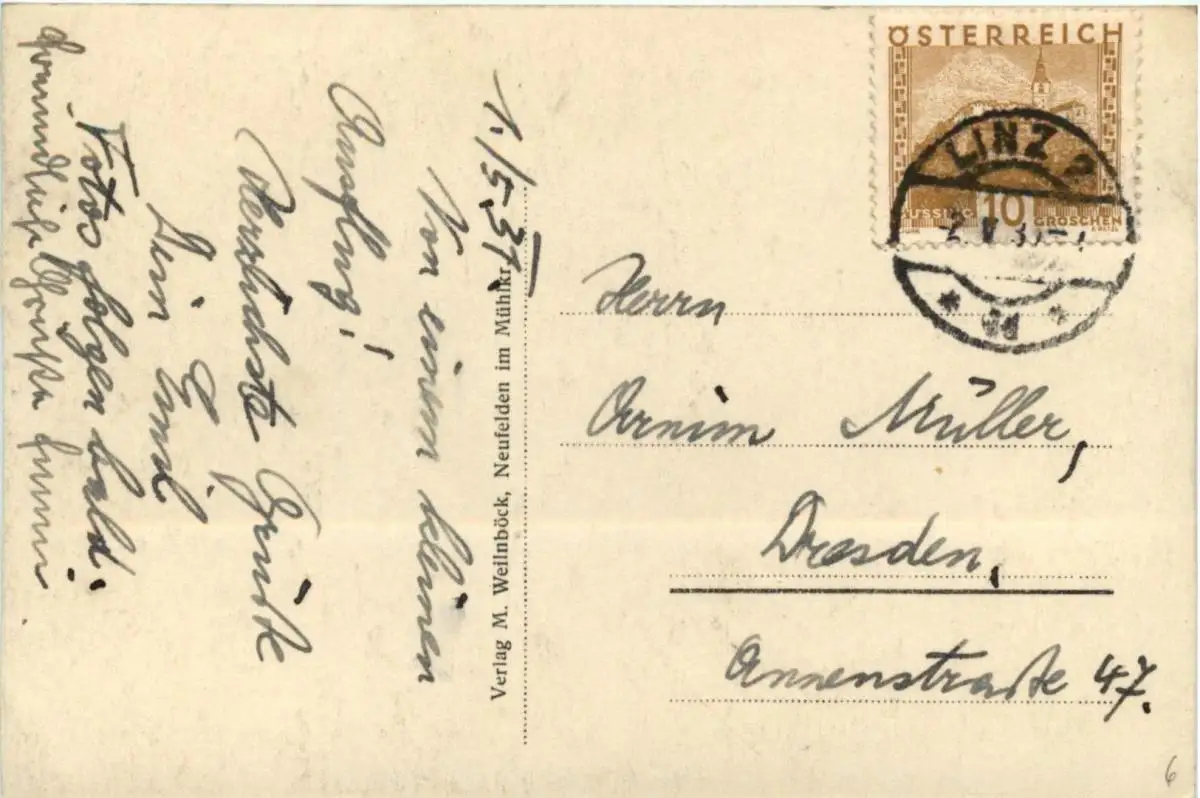 1./5.31
Von einem kleinen
Ausflug!
Herzlichste Grüße
Dein Emil
Fotos folgen bald.
Freundliche Grüße
Verlag M. Weilnböck, Neufelden im Mühlkr.
ÖSTERREICH
GÜSSING
10
GROSCHEN
LINZ 2
Herrn
Armin Müller,
Dresden,
Annenstraße 47.
6